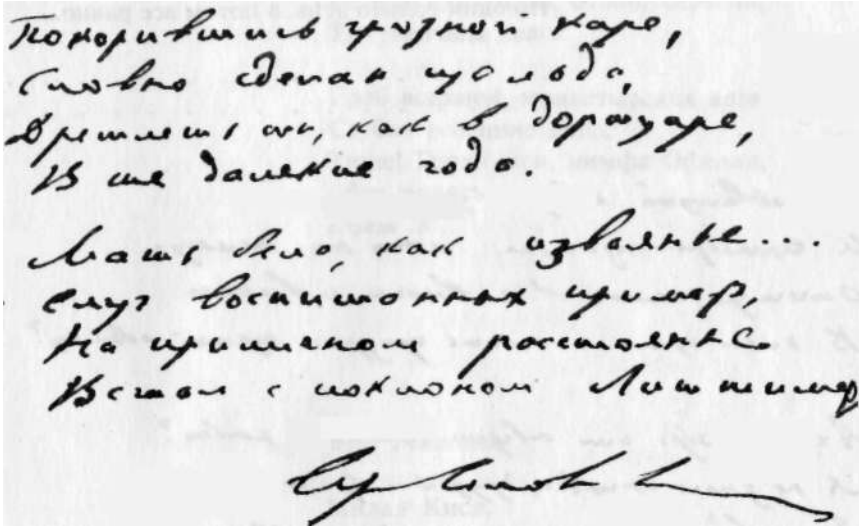 Покорившись грозной каре,
Словно сделан изо льда,
Дремлешь ты, как в дортуаре,
В те далекие года.
Мать бела, как изваянье...
Слуг воспитанных пример,
На приличном расстоянье
Встал с поклоном Литтимер